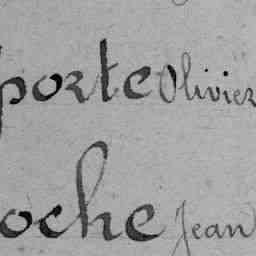 porte Olivier
oche Jean